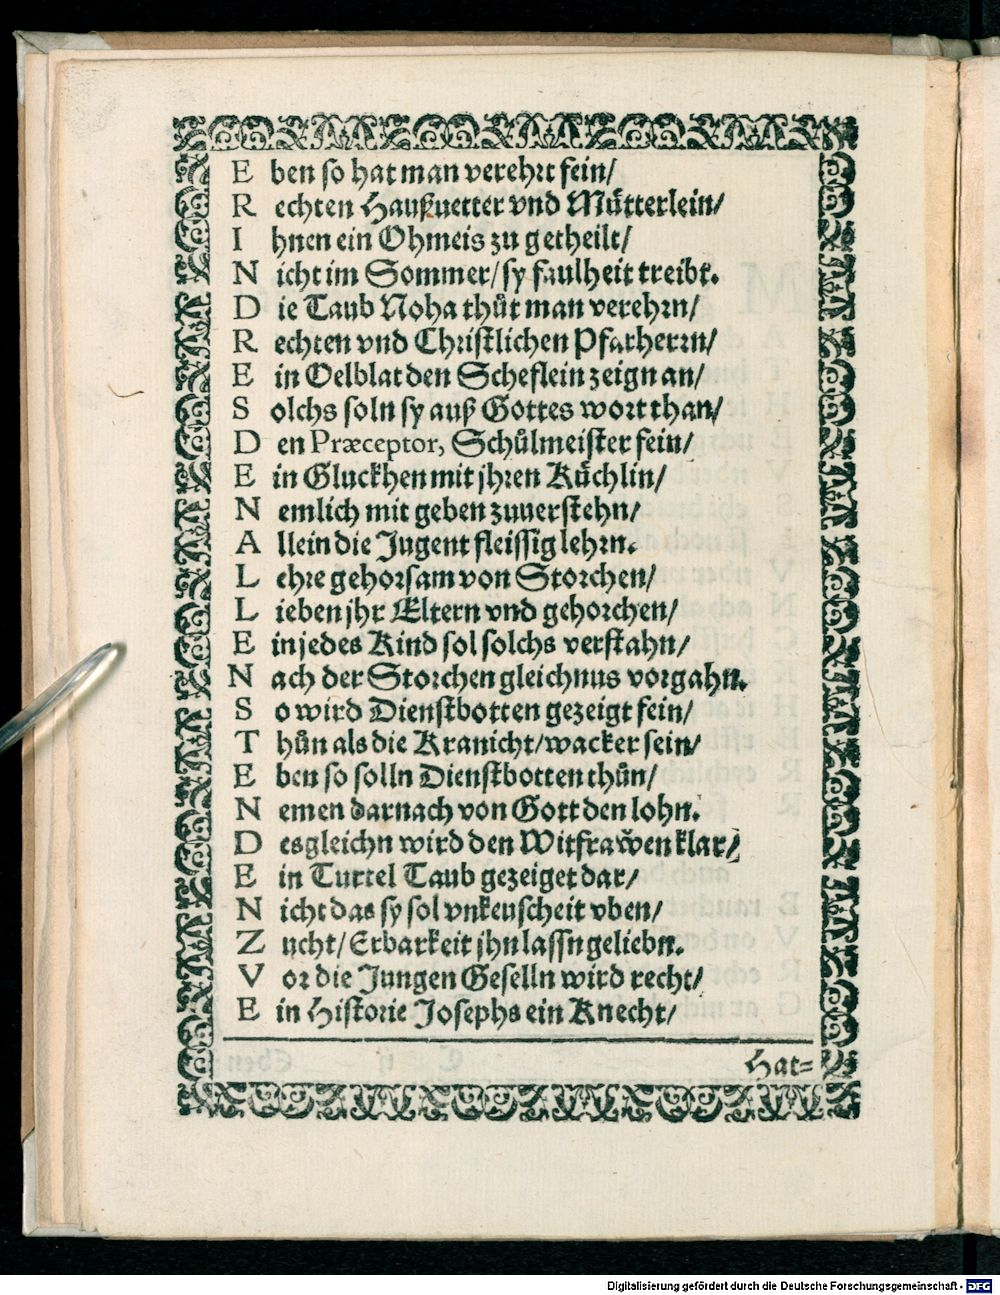 E ben so hat man verehrt fein/
R echten Haußuetter vnd Muͤtterlein/
I hnen ein Ohmeis zu getheilt/
N icht im Sommer/ sy faulheit treibt.
D ie Taub Noha thuͤt man verehrn/
R echten vnd Christlichen Pfarherrn/
E in Oelblat den Scheflein zeign an/
S olchs soln sy auß Gottes wort than/
D en Præceptor, Schuͤlmeister fein/
E in Gluckhen mit jhren Kuͤchlin/
N emlich mit geben zuuerstehn/
A llein die Jugent fleissig lehrn.
L ehre gehorsam von Storchen/
L ieben jhr Eltern vnd gehorchen/
E in jedes Kind sol solchs verstahn/
N ach der Storchen gleichnus vorgahn.
S o wird Dienstbotten gezeigt fein/
T huͤn als die Kranicht/ wacker sein/
E ben so solln Dienstbotten thuͤn/
N emen darnach von Gott den lohn.
D esgleichn wird den Witfrawen klar/
E in Turtel Taub gezeiget dar/
N icht das sy sol vnkeuscheit vben/
Z ucht/ Erbarkeit jhn lassn geliebn.
V or die Jungen Geselln wird recht/
E in Historie Josephs ein Knecht/
Hat-
Digitalisierung gefördert durch die Deutsche Forschungsgemeinschaft - DFG